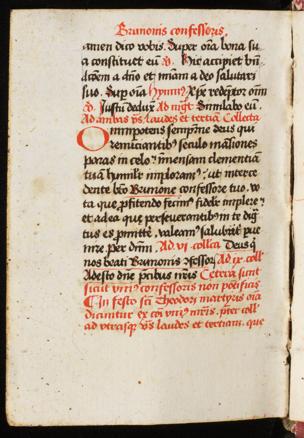 Brunonis confessoris
amen dico vobis. Super oīa bona su
a constituet eū. ꝟ. Hic accipiet bñ
dcōem a dño et mīam a deo salutari
suo. Sup oīa hymn9 Xp̄e redēptor oīm
ꝟ. Justū deduxit Ad mgt Similabo eū.
Ad ambas vs laudes et tertiā Collecta
Omnipotens sempitne deus qui
renuncātib9 seculo māsiones
paras in celo: immensam clementiā
tuā humilit imploram9: ut interce
dente btō Brunone confessore tuo. vo
ta que pfitendo fecim9 fidelit implere:
et ad ea que perseverantib9 in te dig
t9 es pmittē. valeam9 salubrit pve
nire. per dnm. Ad vi collcā. Deus q
nos beati Brunonis ꝯfessoris Ad ix coll
Adesto dñe pcibus nris Cetera sunt
sicut vni9 confessoris non pōtificis
In festo scī Theodori martyris oīa
dicuntur ex cōi vni9 mris. pter coll
ad utrasq vs laudes et tertiam. que